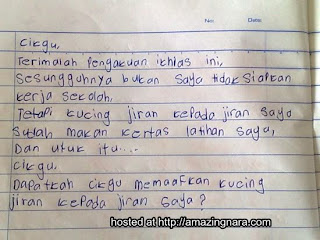 No:
Date:
Cikgu,
Terimalah pengakuan ikhlas ini,
Sesungguhnya bukan saya tidak siapkan
kerja sekolah,
Tetapi kucing jiran kepada jiran saya
Sudah makan kertas latihan saya,
Dan utuk itu....
Cikgu,
Dapatkah cikgu memaafkan kucing
jiran kepada jiran saya?
hosted at http://amazingnara.com